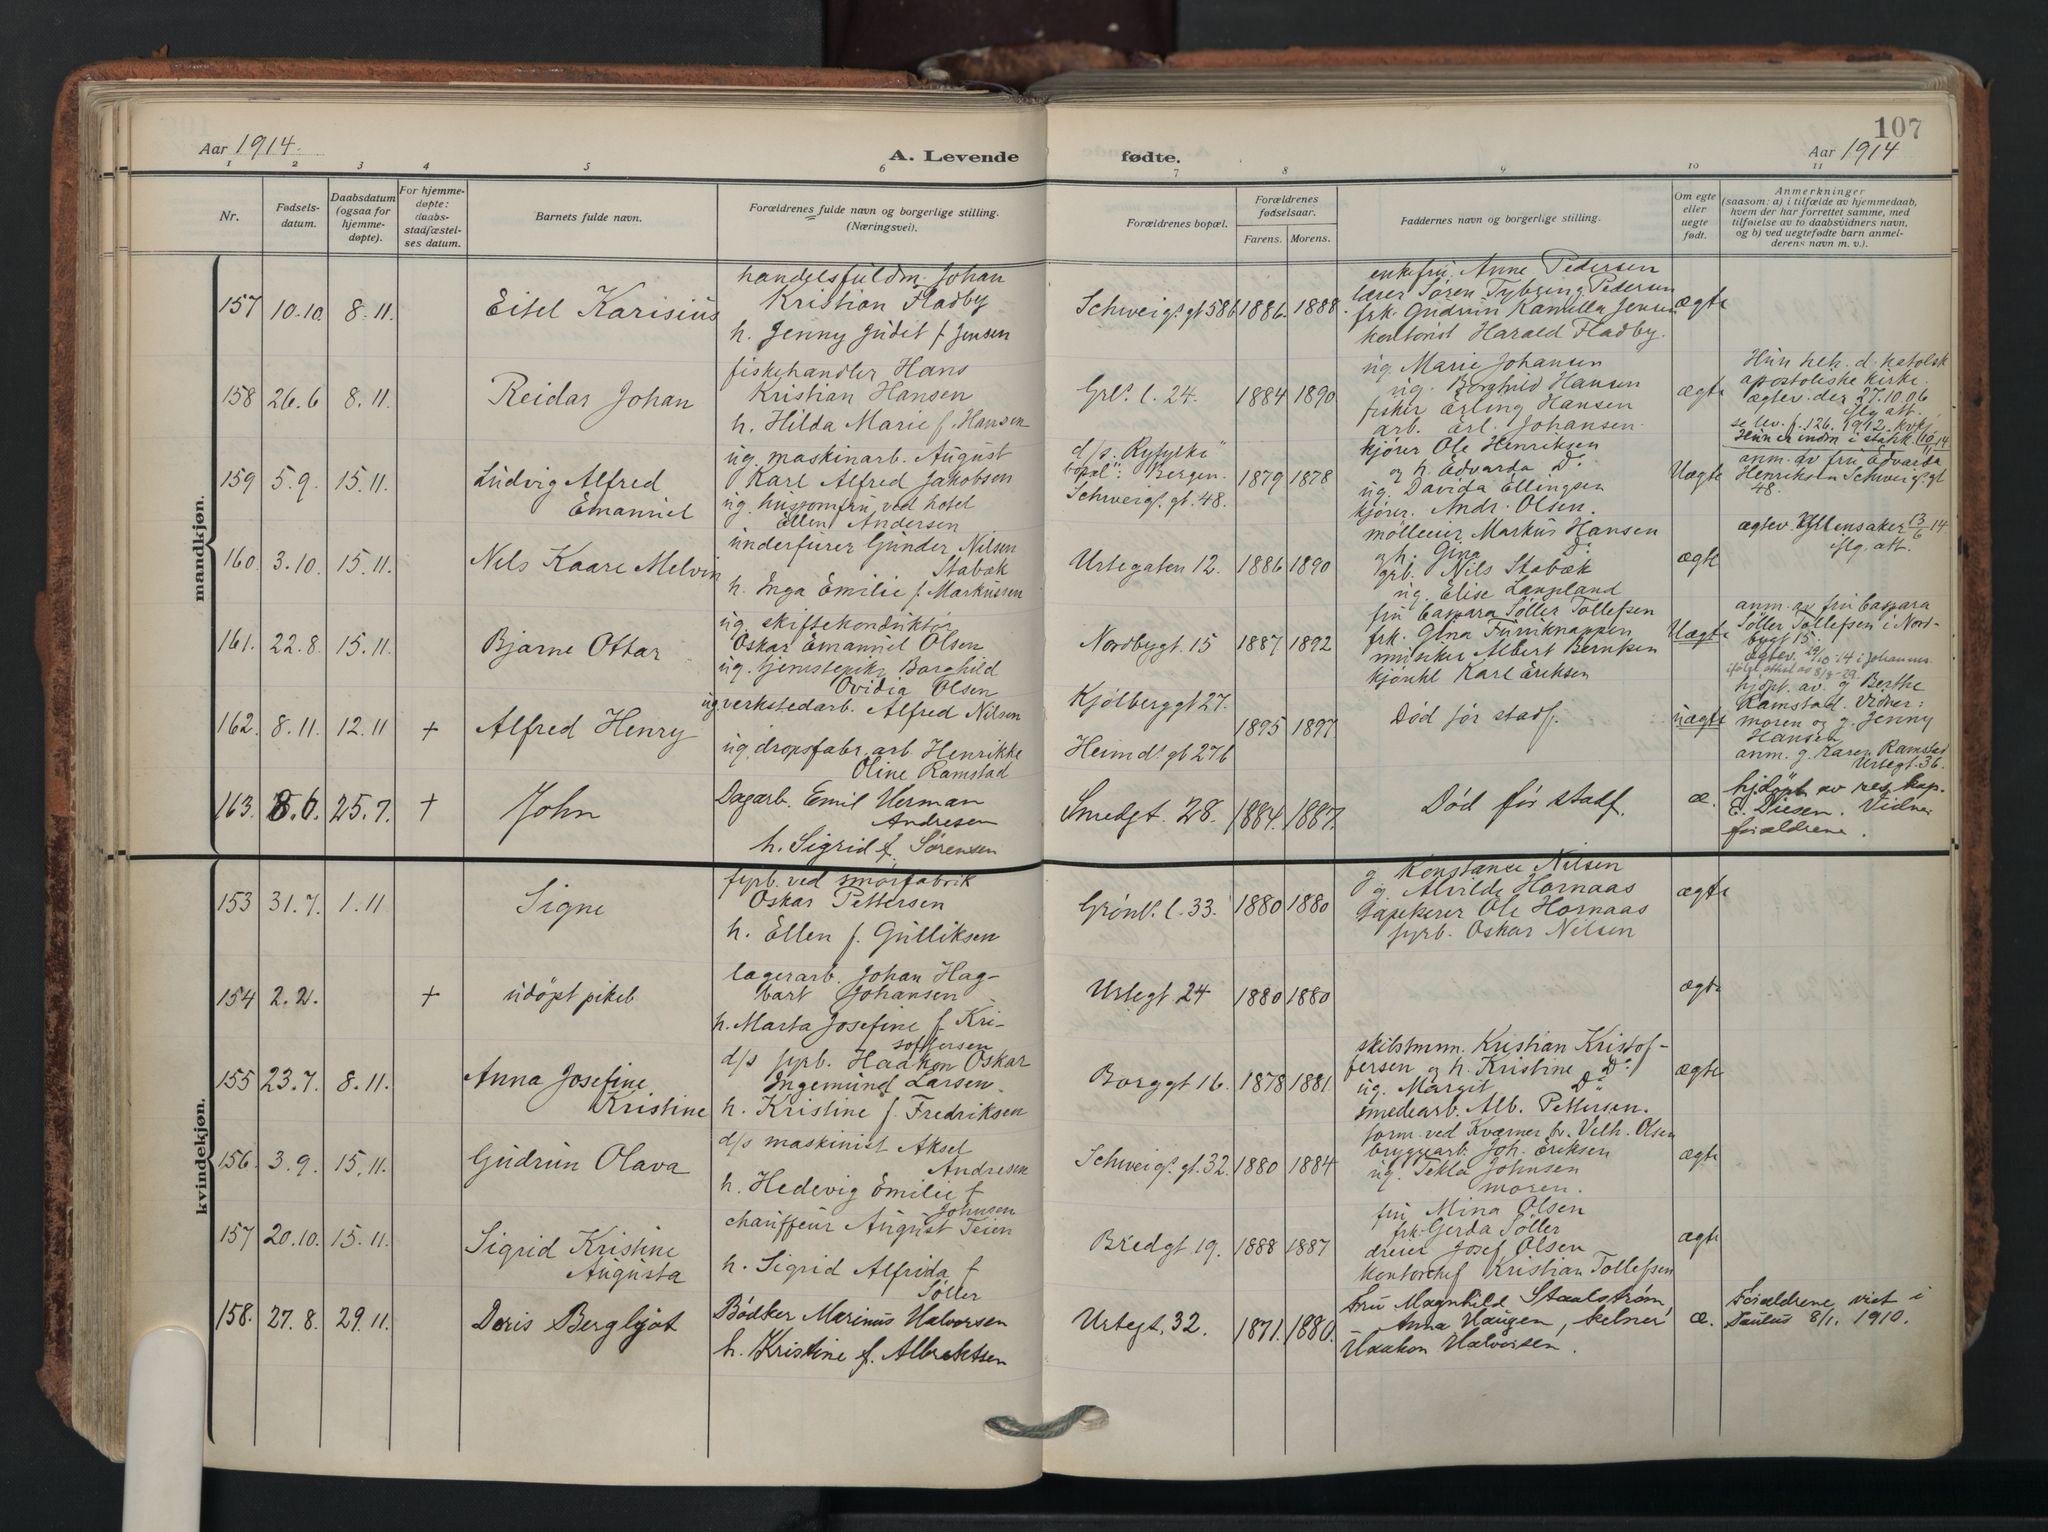 107
Aar 1914.
A. Levende fødte.
Aar 1914
1 2 3 4 5 6 7 8 9 10 11
Nr.
Fødsels-
datum.
Daabsdatum
(ogsaa for
hjemme-
døpte).
For hjemme-
døpte:
daabs-
stadfæstel-
ses datum.
Barnets fulde navn.
Forældrenes fulde navn og borgerlige stilling.
(Næringsvei).
Forældrenes bopæl.
Forældrenes
fødselsaar.
Farens. Morens.
Faddernes navn og borgerlige stilling.
Om egte
eller
uegte
født.
Anmerkninger
(saasom: a) i tilfælde av hjemmedaab,
hvem der har forrettet samme, med
tilføielse av to daabsvidners navn,
og b) ved uegtefødte barn anmel-
derens navn m. v.).
mandkjøn.
157 10.10. 8.11. Eitel Karisius
handelsfuldm. Johan
Kristian Fladby
h. Jenny Judet f. Jensen
Schweigs. gt 58b 1886. 1888.
enkefru. Anne Pedersen
lærer Søren Tybring Pedersen
frk. Gudrun Kamilla Jensen
kontorist Harald Fladby.
ægte
158 26.6 8.11. Reidar Johan
fiskehandler Hans
Kristian Hansen
h. Hilda Marie f. Hansen
Grl. l. 24. 1884 1890
ug. Marie Johansen
ug. Borghild Hansen
fisker Erling Hansen
arb. Erl. Johansen.
ægte
Hun heh. d. katolsk
apostoliske kirke.
ægtev. der 27.10.06
iflg att.
se lev. f. 126. 1912. kvkj
Hun er indm i statsk.
159 5.9. 15.11. Ludvig Alfred
Emanuel
ug. maskinarb. August
Karl Alfred Jakobsen
ug. husjomfru ved hotel
Ellen Andersen
d/s. "Ryfylke"
bopæl: Bergen.
Schweigs. gt. 48. 1879 1878
kjører Ole Henriksen
og h. Edvarda Do.
ug. Davida Ellingsen
kjører. Andr. Olsen.
Uægte
anm. av fru Edvarda
Henriksen Schweigs. gt
48.
160. 3.10. 15.11. Nils Kaare Melvin
underfurer Gunder Nilsen
Stabæk
h. Inga Emilie f. Markussen
Urtegaten 12. 1886 1890
mølleeier Markus Hansen
og h. Gina Do.
grb. Nils Stabæk
ug. Elise Langland
ægte
ægtev. Ullensaker 13/6 14
iflg. att.
161. 22.8. 15.11. Bjarne Ottar
ug. skiftekonduktør
Oskar Emanuel Olsen
ug. tjenestepike Borghild
Ovidia Olsen
Nordbygt. 15 1887 1892
fru Caspara Søller Tollefsen
frk. Gina Furuknappen
musiker Albert Berntzen
Karl Eriksen
Uægte
anm. av fru Caspara
Søller Tollefsen i Nord-
bygt 15.
ægtev. 29/10.14 i Johannes
ifølge attest av 8/8-29.
162. 8.11. 12.11 + Alfred Henry
ug. verkstedarb. Alfred Nilsen
ug. dropsfabr. arb. Henrikke
Oline Ramstad
Kjølberggt 27.
Heimds. gt 27b 1895 1897
Død før stadf.
uægte
hjdøpt. av. g Berthe
Ramstad. Vidner:
moren og g. Jenny
Hansen
anm. g. Karen Ramstad
Urtegt. 36.
163. 8.6. 25.7. + John
Dagarb. Emil Herman
Andresen
h. Sigrid f. Sørensen
Smedgt. 28. 1884. 1887.
Død før stadf.
æ.
hjdøpt av res. kap.
E. Diesen. Vidner
forældrene.
kvindekjøn.
153 31.7. 1.11 Signe
fyrb. ved smørfabrik
Oskar Pettersen
h. Ellen f. Gulliksen
Grønl. l. 33. 1880 1880
g Konstance Nilsen
g. Alvilde Hornaas
Tapetserer Ole Hornaas
fyrb. Oskar Nilsen
ægte
154 2.2. + udøpt pikeb
lagerarb. Johan Hag-
bart Johansen
h. Marta Josefine f. Kri-
stoffersen
Urtegt 24 1880 1880
ægte
155 23.7. 8.11. Anna Josefine
Kristine
d/s fyrb. Haakon Oskar
Ingemund Larsen.
h. Kristine f. Fredriksen
Borggt 16. 1878 1881.
skilstmm. Kristian Kristof-
fersen og h. Kristine Do.
ug. Margit Do
smedearb. Alb. Pettersen.
ægte
156. 3.9. 15.11. Gudrun Olava
d/s maskinist Aksel
Andresen
h. Hedevig Emilie f
Johnsen
Schweigs. gt. 32. 1880 1884
form. ved Kværner br. Vilh. Olsen
bryggearb. Joh. Eriksen
ug. Tekla Johnsen
moren.
ægte
157 20.10. 15.11. Sigrid Kristine
Augusta
chauffeur August Teien
h. Sigrid Alfrida f
Søller
Bredgt 19. 1888 1887
fru Mina Olsen
frk. Gerda Søller
dreier Josef Olsen
kontorchef Kristian Tollefsen
ægte
158. 27.8. 29.11. Doris Bergljot
Bødker Marinus Halvorsen
h. Kristine f. Albrektsen
Urtegt. 32. 1871. 1880.
Fru Magnhild Staalstrøm,
Anna Haugen, kelner
Haakon Halvorsen.
æ.
Forældrene viet i
Paulus 8/1. 1910.